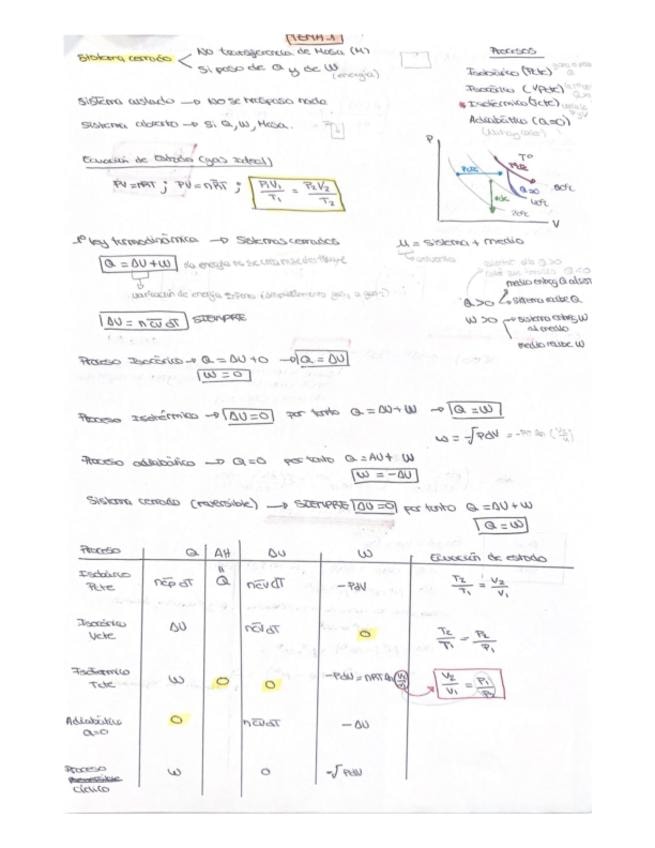 TEMA 1
Sistema cerrado
No transferencia de Masa (M)
Si paso de Q y de W (energía)
Sistema aislado → No se traspasa nada
Sistema abierto → Si Q, W, Masa.
Procesos
Isobárico (Pcte)
Isocórico (Vcte)
Isotérmico (Tcte)
Adiabático (Q=0)
P
Tº
Q=0
V
Ecuación de Estado (gas ideal)
PV = nRT ; PV = nRT ; P1V1/T1 = P2V2/T2
1º ley termodinámica → Sistemas cerrados
U = sistema + medio
universo
Q = ΔU + W
variación de energía interna
medio entrega Q al sist
Q>0 sistema recibe Q
W>0 sistema entrega W al medio
medio recibe W
ΔU = n cv dT SIEMPRE
Proceso Isocórico → Q = ΔU + 0 → Q = ΔU
W = 0
Proceso Isotérmico → ΔU = 0 por tanto Q = ΔU + W → Q = W
W = -∫PdV = -
Proceso adiabático → Q = 0 por tanto Q = ΔU + W
W = -ΔU
Sistema cerrado (reversible) → SIEMPRE ΔU = 0 por tanto Q = ΔU + W
Q = W
Proceso Q ΔH ΔU W Ecuación de estado
Isobárico Pcte n cp dT Q n cv dT -PdV T2/T1 = V2/V1
Isocórico Vcte ΔU n cv dT 0 T2/T1 = P2/P1
Isotérmico Tcte W 0 0 -PdV = nRT ln V2/V1 V2/V1 = P1/P2
Adiabático Q=0 0 n cv dT -ΔU
Proceso Cíclico W 0 -∫PdV